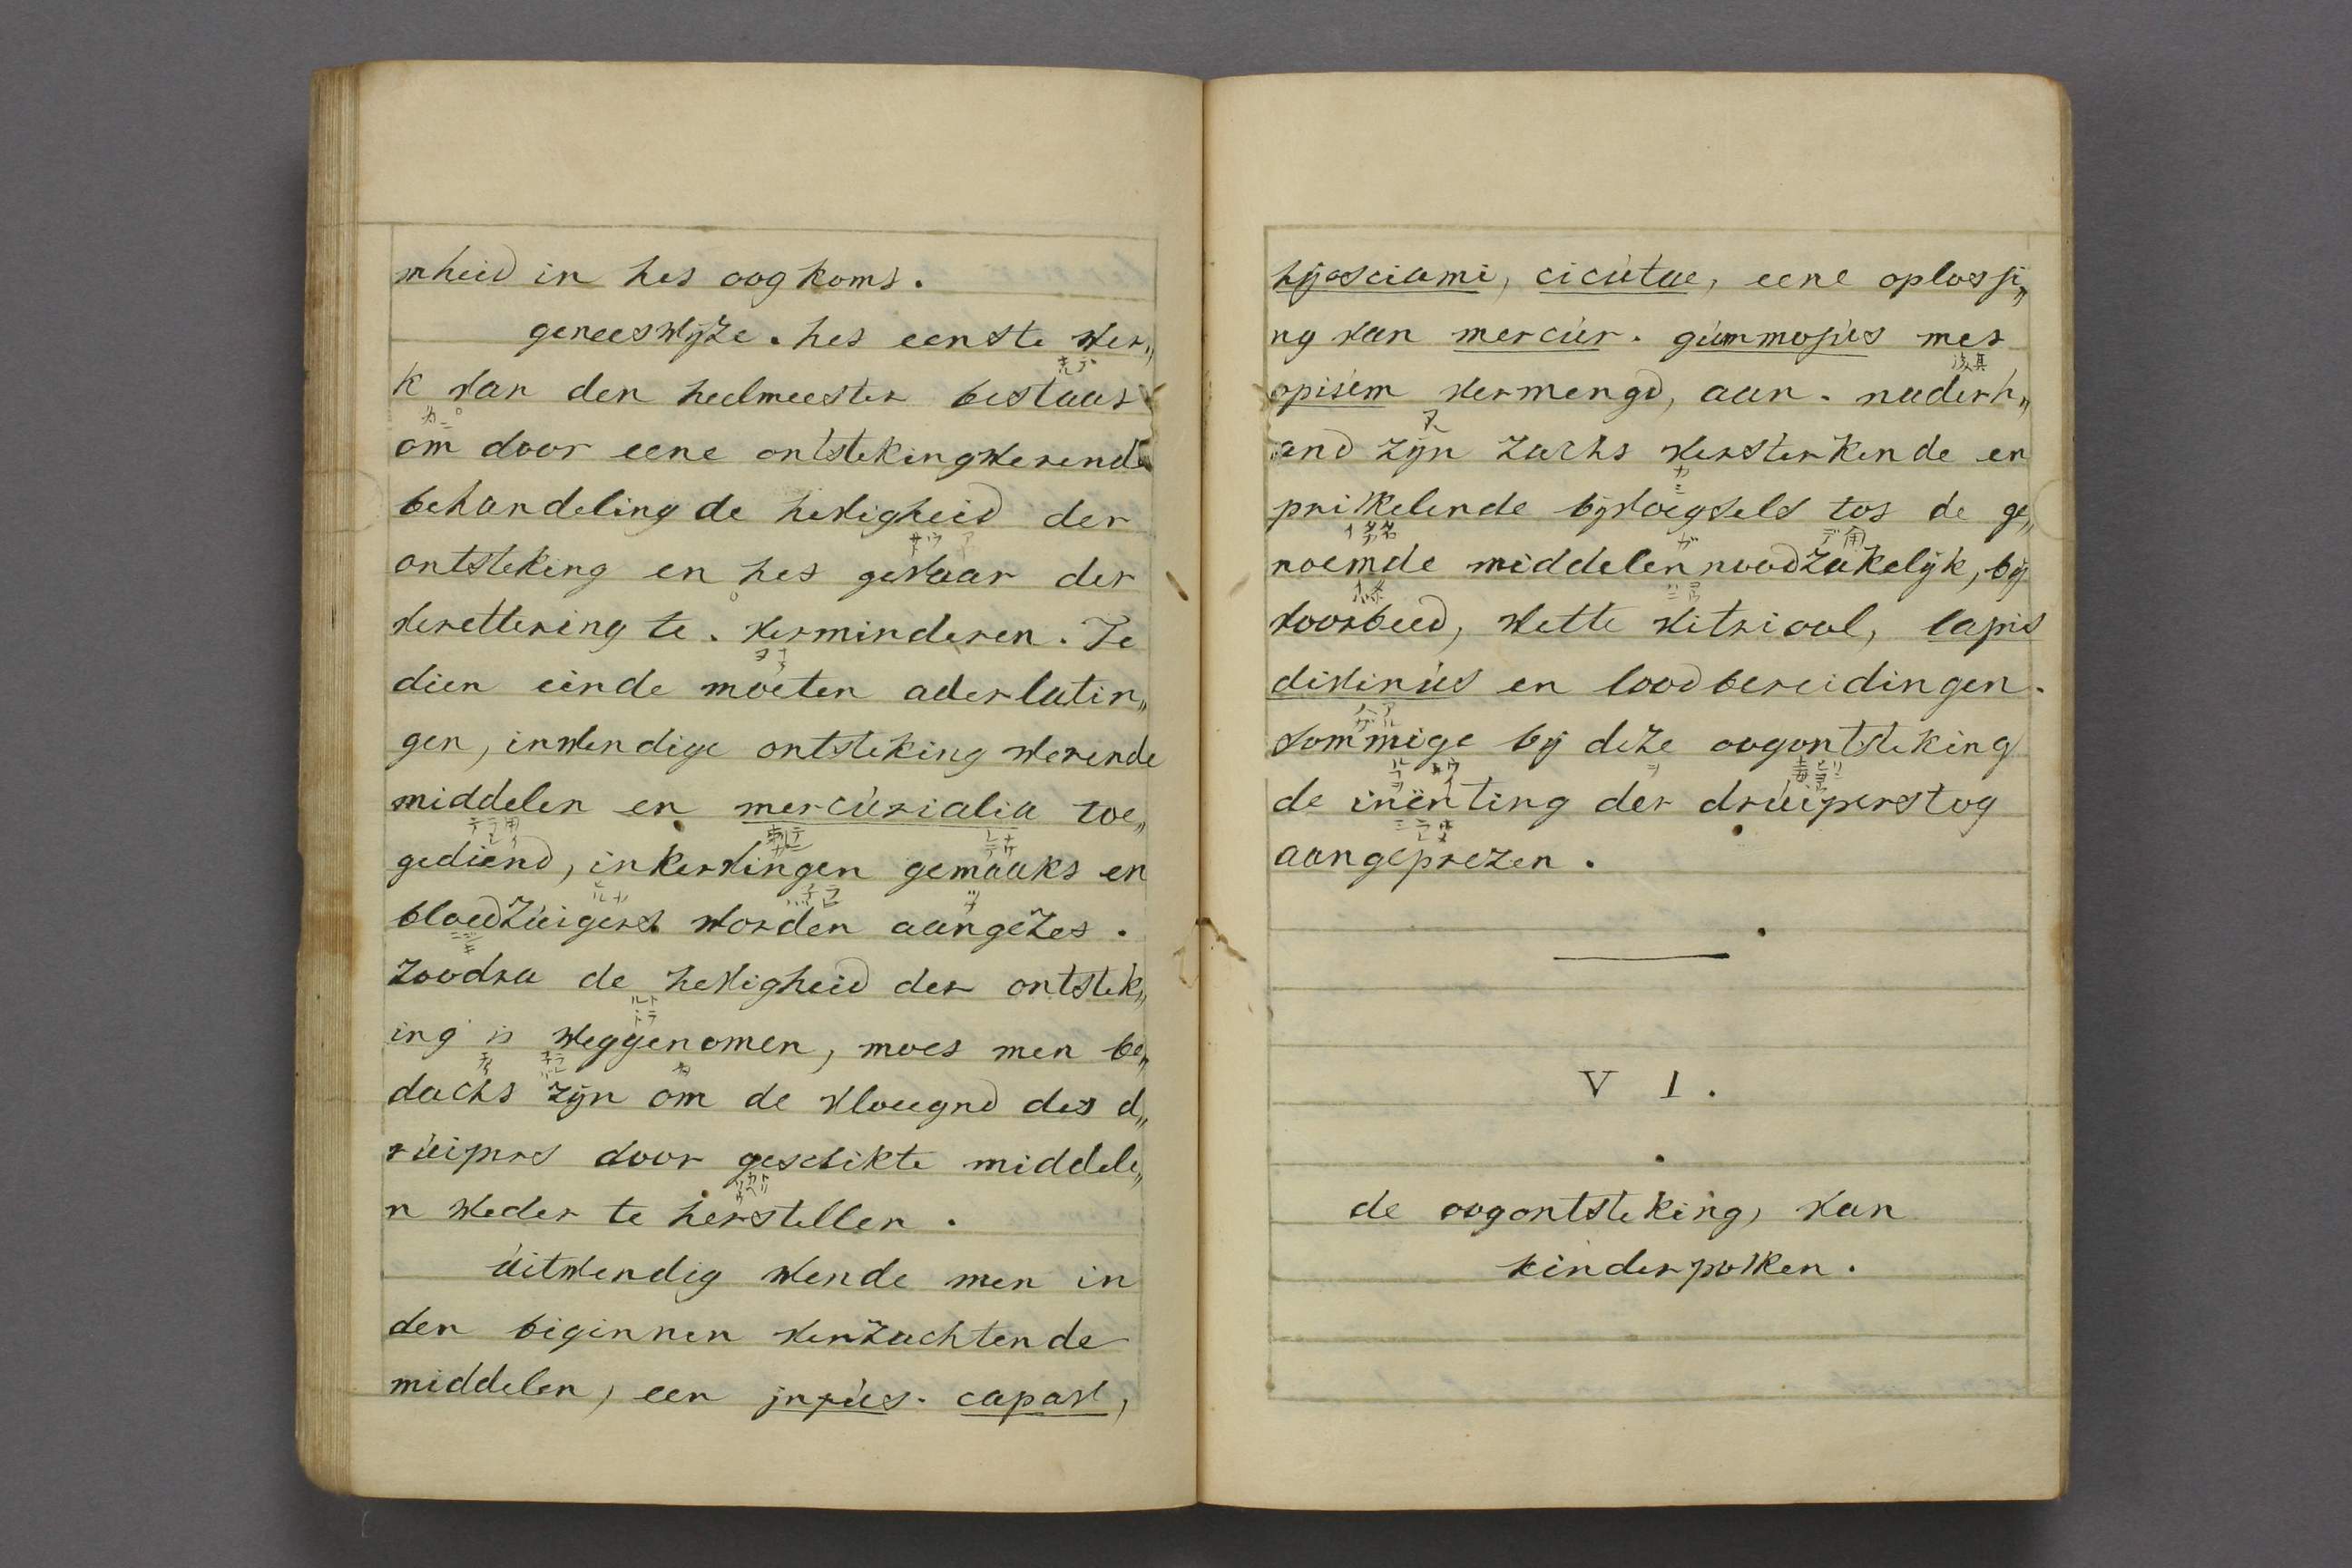 mheid in het oog komt.
geneeswijze. het eerste wer„
k van den heelmeester bestaat
om door eene ontstekingwerende
behandeling de hevigheid der
ontsteking en het gevaar der
verettering te. verminderen. Te
dien einde moeten aderlatin„
gen, inwendige ontsteking werende
middelen en mercurialia toe„
gediend, inkervingen gemaakt en
bloedzuigers worden aangezet.
zoodra de hevigheid der ontstek„
ing is weggenomen, moet men be„
dacht zijn om de vloeegnd des d„
ruipers door geschikte middele„
n weder te herstellen.
uitwendig wende men in
den biginnen verzachtende
middelen, een infus. capav,
hijosciami, cicutae, eene oplossi„
ng van mercur. gummosus met
opium vermengd, aan. naderh„
and zijn zacht versterkende en
prikkelende bijvoegsels tot de ge„
noemde middelen noodzakelijk, bij
voorbeed, witte vitriool, lapis
divinus en loodbereidingen.
sommige bij deze oogontsteking
de inënting der druiperstog
aangeprezen.
V I.
de oogontsteking, van
kinderpokken.